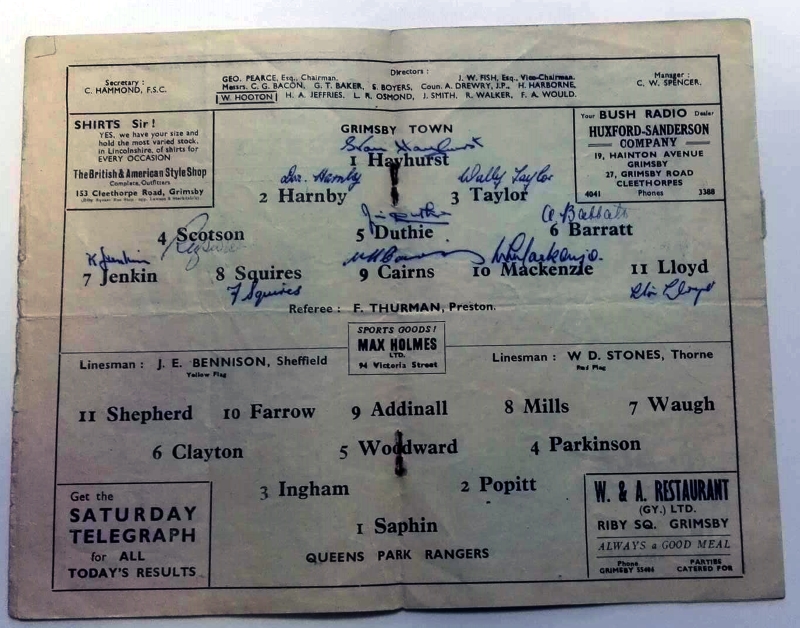 Secretary :
C. HAMMOND, F.S.C.
Directors :
GEO. PEARCE, Esq., Chairman. J. W. FISH, Esq., Vice-Chairman.
Messrs. C. G. BACON, G. T. BAKER, S. BOYERS, Coun. A. DREWRY, J.P., H. HARBORNE,
W. HOOTON H. A. JEFFRIES, L. R. OSMOND, J. SMITH, R. WALKER, F. A. WOULD.
Manager :
C. W. SPENCER.
SHIRTS Sir!
YES, we have your size and
hold the most varied stock,
in Lincolnshire, of shirts for
EVERY OCCASION
The British & American Style Shop
Complete Outfitters
153 Cleethorpe Road, Grimsby
Your BUSH RADIO Dealer
HUXFORD-SANDERSON
COMPANY
19, HAINTON AVENUE
GRIMSBY
27, GRIMSBY ROAD
CLEETHORPES
4041 Phones 3388
GRIMSBY TOWN
Stan Hayhurst
1 Hayhurst
Harnby Wally Taylor
2 Harnby 3 Taylor
Jim Duthie A Barratt
4 Scotson 5 Duthie 6 Barratt
R Jenkin
7 Jenkin 8 Squires 9 Cairns 10 Mackenzie 11 Lloyd
F Squires Lloyd
Referee : F. THURMAN, Preston.
SPORTS GOODS!
MAX HOLMES
LTD.
94 Victoria Street
Linesman : J. E. BENNISON, Sheffield
Yellow Flag
Linesman : W. D. STONES, Thorne
Red Flag
11 Shepherd 10 Farrow 9 Addinall 8 Mills 7 Waugh
6 Clayton 5 Woodward 4 Parkinson
3 Ingham 2 Popitt
1 Saphin
QUEENS PARK RANGERS
Get the
SATURDAY
TELEGRAPH
for ALL
TODAY'S RESULTS
W. & A. RESTAURANT
(GY.) LTD.
RIBY SQ. GRIMSBY
ALWAYS a GOOD MEAL
Phone PARTIES
GRIMSBY 55486 CATERED FOR